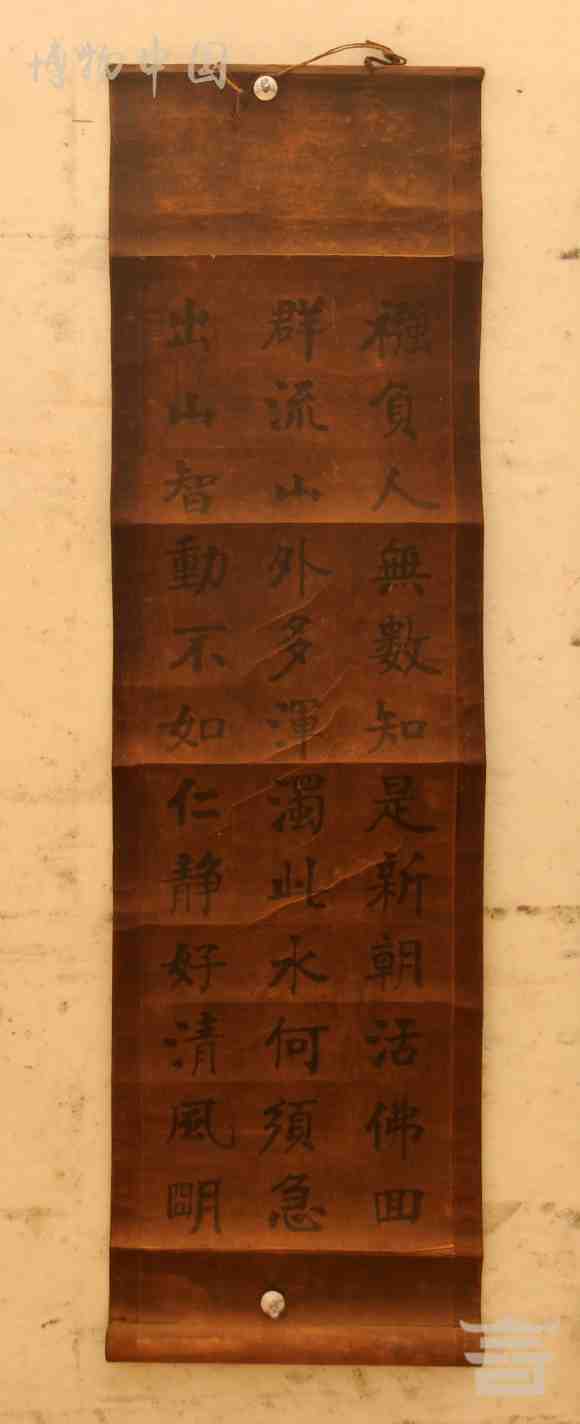 博物中国
襁負人無數知是新朝活佛回
群流山外多渾濁此水何須急
出山智動不如仁静好清風明